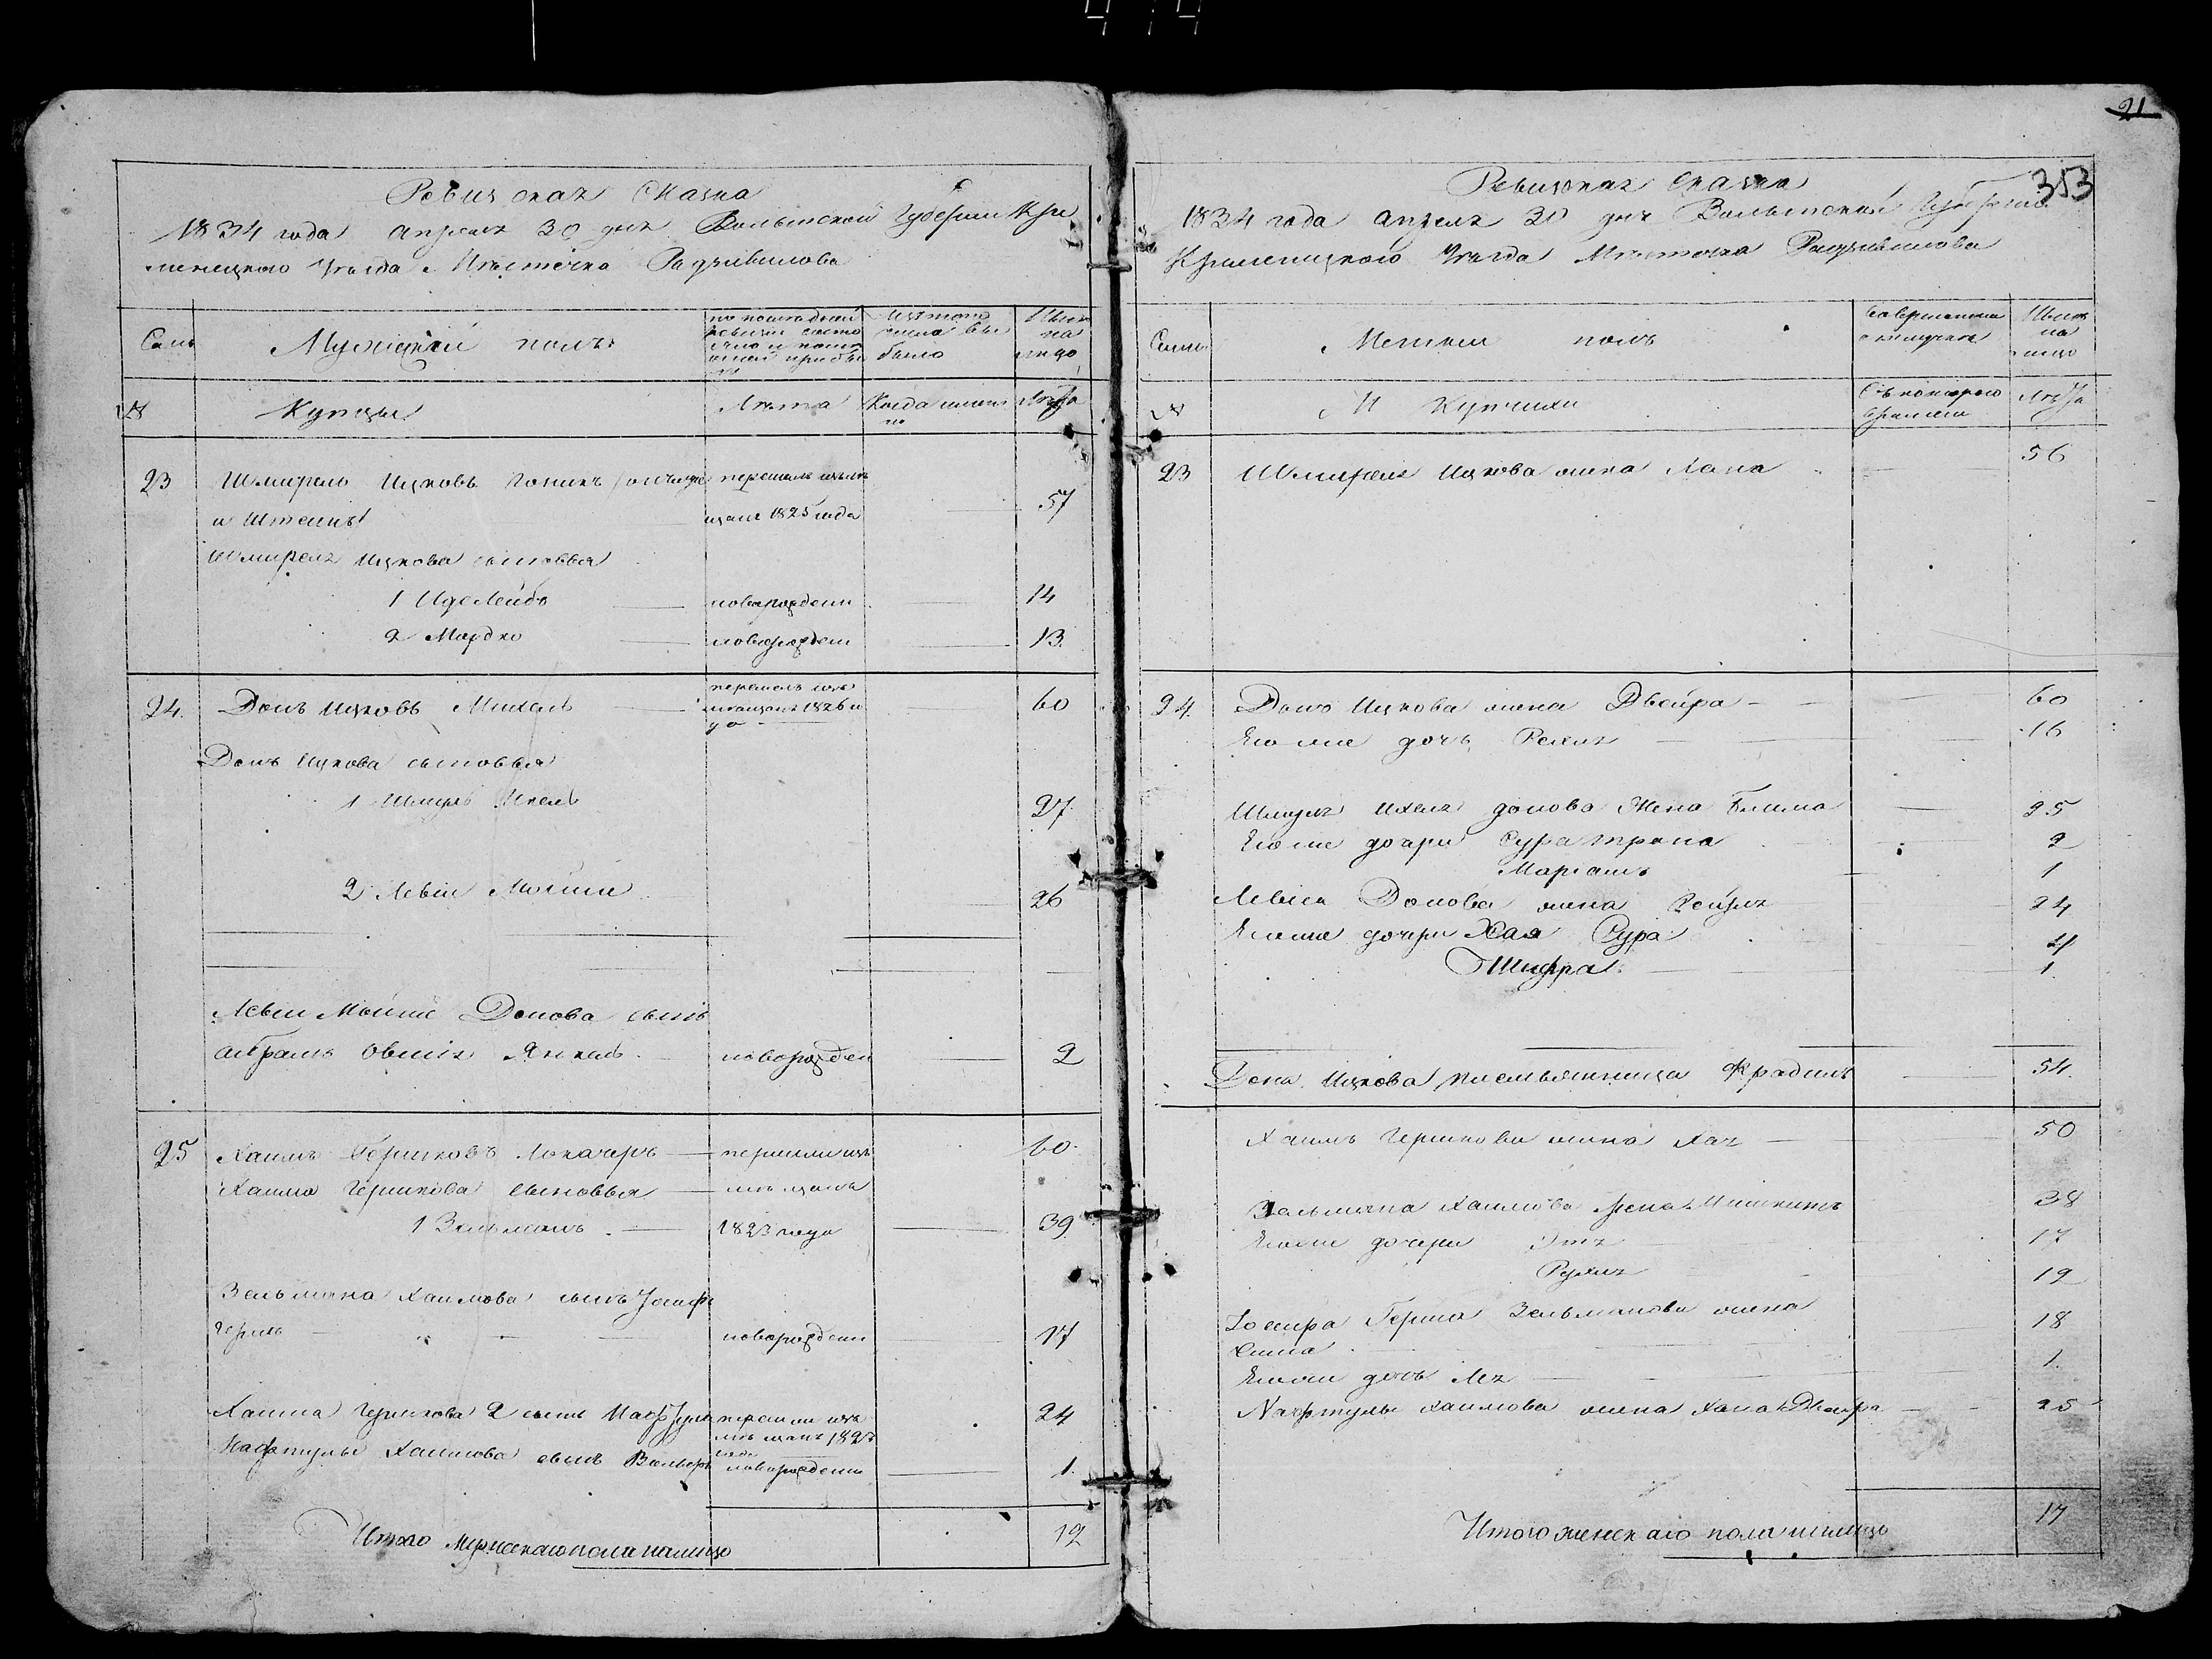 21
353
Ревизская Сказка
1834 года апреля 30 дня Волынской Губернии Кре
менецкого Уезда Местечка Радзивилова
Семьи
Мужеский полъ
по последней ревизии состояло и после оной прибыло
Изъ того числа выбыло
Ныне на лицо
№
Купцы
Лета
Когда именно
Лета
23 Шмирель Ицковъ
перешолъ изъ ме
и Штейнъ
щанъ 1825 года 57
Шмиреля Ицкова сыновья
1 Иделейбъ новорожденъ 14
2 Мордко новорожденъ 13
24. Донъ Ицковъ Михель
перешолъ изъ мещанъ 1826 го
да 60
Донъ Ицкова сыновья
1 Шмуль Ихель 27.
2 Левiй Мойше 26
Левiй Мойше Донова сынъ
Абрамъ Овшiя Янкель новорожден 2
25 Хаимъ Гершковъ Локачеръ перешли изъ 60.
Хаима Гершкова Сыновья мещанъ
1 Зельманъ 1823 года 39
Зельмана Хаимова сынъ Iосифъ
Гершъ новорожденъ 17
Хаима Гершкова 2 сынъ перешли изъ мещанъ 1827 24
Нафтулы Хаимова сынъ Вольфъ новорожденъ 1.
Итого Мужескаго пола налицо 12
Ревизская Сказка
1834 года апреля 30 дня Волынской Губернии
Кременецкого Уезда Местечка Радзивилова
Семьи
Женский полъ
Ныне на лицо
№
И Купчихи
Съ котораго времени
Лета
23 Шмиреля Ицкова жена Хана 56
24. Донъ Ицкова жена Двейра 60
Его же дочь Рейзля 16
Шмуля Ихеля Донова Жена Блима 25
Его же дочери Сура 2
Марiамъ 1
Левiя Донова жена Рейзля 24
Его же дочери Хая Сура 4
Шифра 1
Дона Ицкова племянница Фрадель 54.
Хаимъ Гершкова жена Хая 50
Зельмана Хаимова Жена 38
Его же дочери Этя 17
Рухля 19
Iосифа Герша Зельманова жена 18
Его же дочь Лея 1.
Нафтулы Хаимова жена Хана Двейра 25
Итого женскаго пола налицо 17